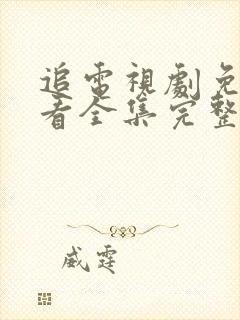 追電視劇免
看全集完整
威霆